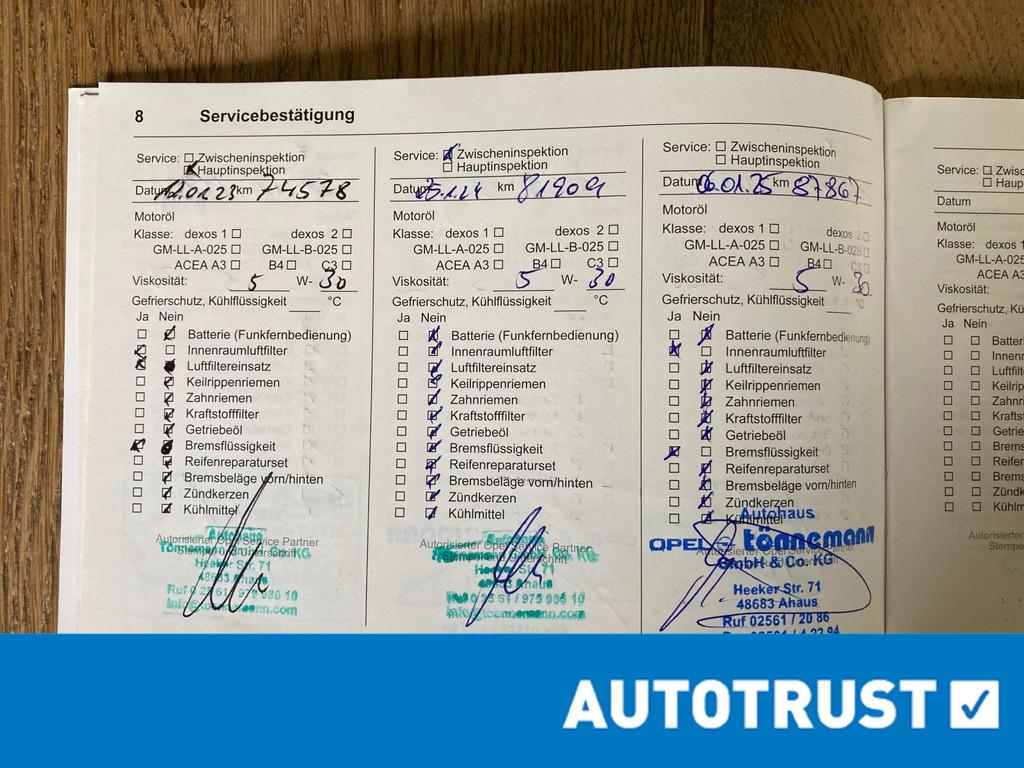 8 Servicebestätigung
Service: Zwischeninspektion
Hauptinspektion
Datum 12.01.23 km 74578
Motoröl
Klasse: dexos 1 dexos 2
GM-LL-A-025 GM-LL-B-025
ACEA A3 B4 C3
Viskosität: 5 W- 30
Gefrierschutz, Kühlflüssigkeit °C
Ja Nein
Batterie (Funkfernbedienung)
Innenraumluftfilter
Luftfiltereinsatz
Keilrippenriemen
Zahnriemen
Kraftstofffilter
Getriebeöl
Bremsflüssigkeit
Reifenreparaturset
Bremsbeläge vorn/hinten
Zündkerzen
Kühlmittel
Autorisierter Opel Service Partner
Autohaus
Tönnemann GmbH & Co. KG
Heeker Str. 71
48683 Ahaus
Ruf 0 25 61 / 975 986 10
info@toennemann.com
Service: Zwischeninspektion
Hauptinspektion
Datum km 81909
Motoröl
Klasse: dexos 1 dexos 2
GM-LL-A-025 GM-LL-B-025
ACEA A3 B4 C3
Viskosität: 5 W- 30
Gefrierschutz, Kühlflüssigkeit °C
Ja Nein
Batterie (Funkfernbedienung)
Innenraumluftfilter
Luftfiltereinsatz
Keilrippenriemen
Zahnriemen
Kraftstofffilter
Getriebeöl
Bremsflüssigkeit
Reifenreparaturset
Bremsbeläge vorn/hinten
Zündkerzen
Kühlmittel
Autorisierter Opel Service Partner
Autohaus
Tönnemann GmbH & Co. KG
Heeker Str. 71
48683 Ahaus
Ruf 0 25 61 / 975 986 10
info@toennemann.com
Service: Zwischeninspektion
Hauptinspektion
Datum 06.01.25 km 87867
Motoröl
Klasse: dexos 1 dexos 2
GM-LL-A-025 GM-LL-B-025
ACEA A3 B4 C3
Viskosität: 5 W- 30
Gefrierschutz, Kühlflüssigkeit °C
Ja Nein
Batterie (Funkfernbedienung)
Innenraumluftfilter
Luftfiltereinsatz
Keilrippenriemen
Zahnriemen
Kraftstofffilter
Getriebeöl
Bremsflüssigkeit
Reifenreparaturset
Bremsbeläge vorn/hinten
Zündkerzen
Kühlmittel
Autorisierter Opel Service Partner
Autohaus
OPEL tönnemann
GmbH & Co. KG
Heeker Str. 71
48683 Ahaus
Ruf 02561 / 20 86
Service: Zwisc
Haup
Datum
Motoröl
Klasse: dexos 1
GM-LL-A-025
ACEA A3
Viskosität:
Gefrierschutz, Kü
Ja Nein
Batter
Innen
Luftfilt
Keilrip
Zahnri
Krafts
Getrie
Brems
Reifen
Brems
Zündk
Kühlm
Autorisierte
Stempe
AUTOTRUST